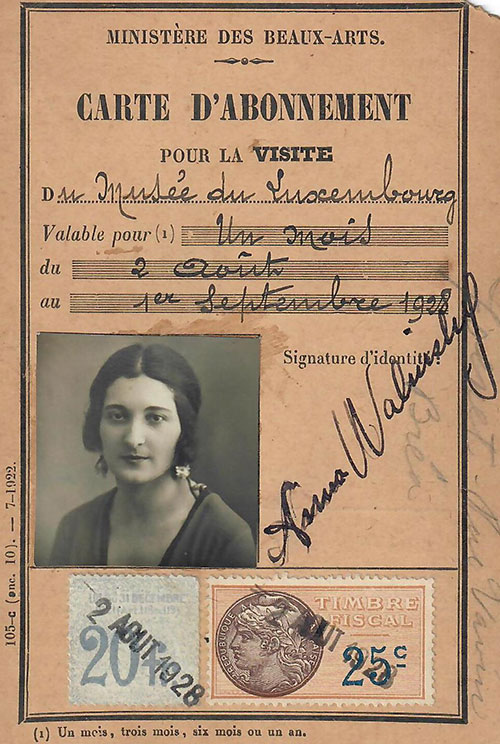 MINISTÈRE DES BEAUX-ARTS.
CARTE D'ABONNEMENT
POUR LA VISITE
Du Musée du Luxembourg
Valable pour (1) Un mois
du 2 Août
au 1er Septembre 1928
Signature d'identité:
Anna Walinska
105-c (anc. 10). — 7-1922.
31 DÉCEMBRE
20c
2 AOUT 1928
TIMBRE
FISCAL
RÉPUBLIQUE FRANÇAISE
25c
2 AOUT 1928
(1) Un mois, trois mois, six mois ou un an.